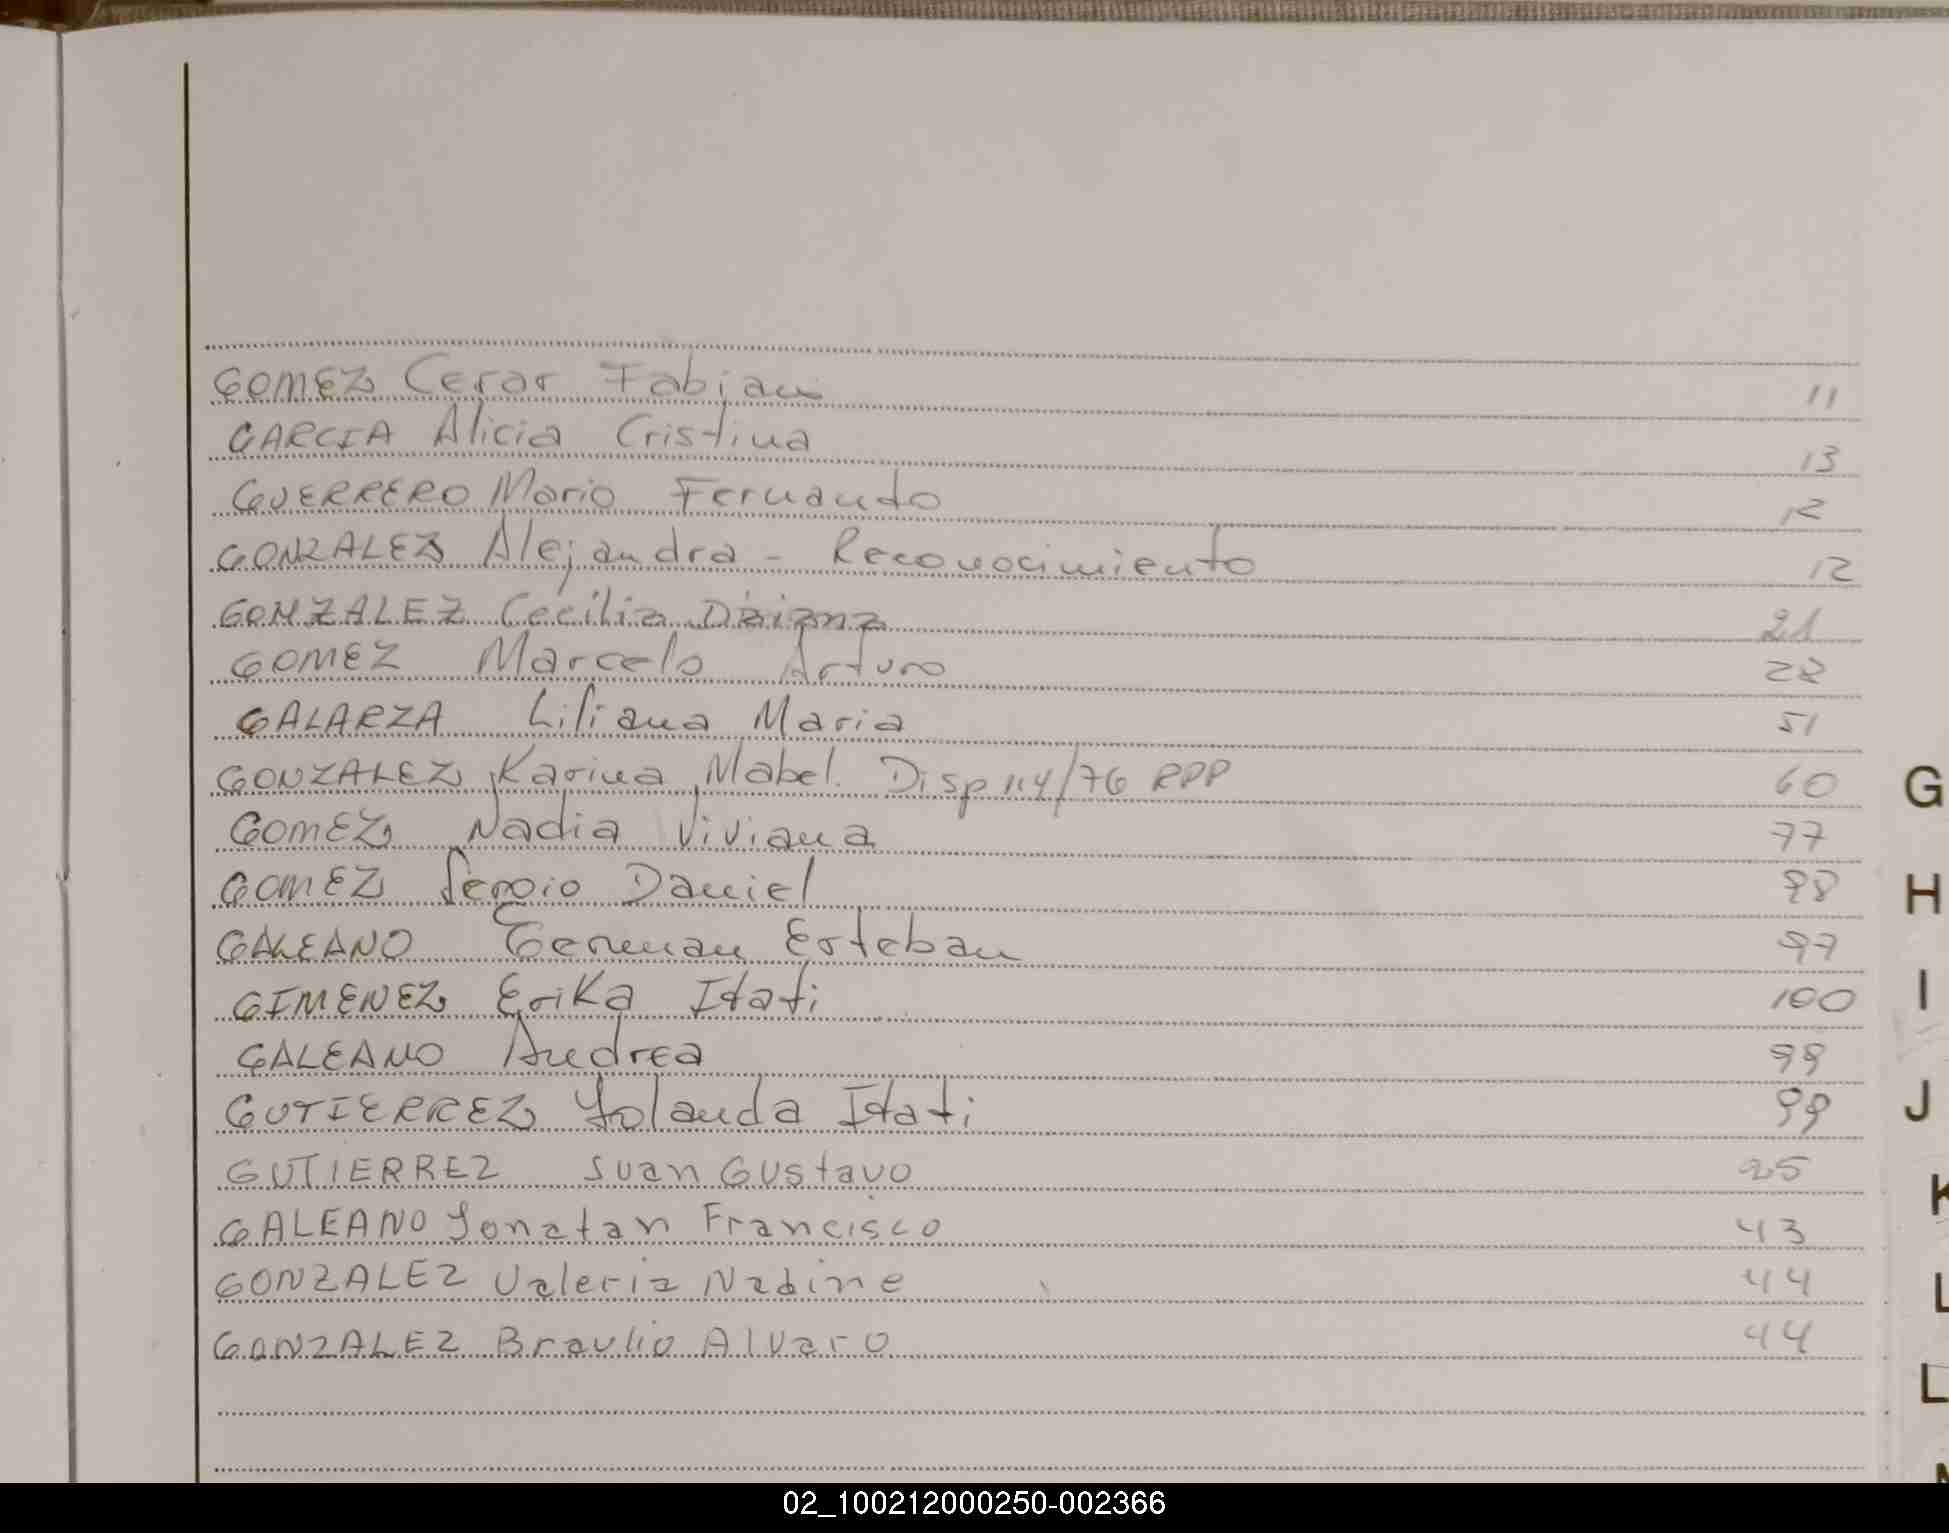 GOMEZ Cesar Fabian 11
GARCIA Alicia Cristina 13
GUERRERO Mario Fernando 12
GONZALEZ Alejandra - Reconocimiento 12
GONZALEZ Cecilia Daiana 21
GOMEZ Marcelo Arturo 28
GALARZA Liliana Maria 51
GONZALEZ Karina Mabel. Disp 114/76 RPP 60
GOMEZ Nadia Viviana 77
GOMEZ Sergio Daniel 98
GALEANO German Esteban 97
GIMENEZ Erika Itati 100
GALEANO Andrea 99
GUTIERREZ Yolanda Itati 99
GUTIERREZ Juan Gustavo 25
GALEANO Jonatan Francisco 43
GONZALEZ Valeria Nadine 44
GONZALEZ Braulio Alvaro 44
G
H
I
J
K
L
L
02_100212000250-002366